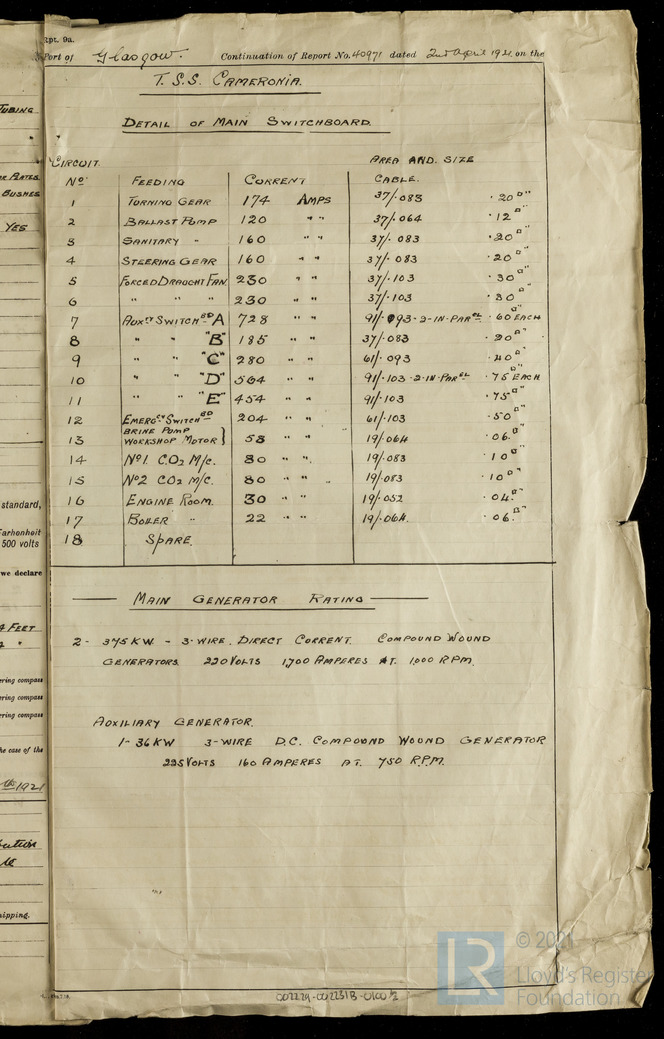 Rpt. 9a.
Port of Glasgow. Continuation of Report No. 40971 dated 2nd April 1921 on the
T.S.S. CAMERONIA.
DETAIL OF MAIN SWITCHBOARD.
CIRCUIT AREA AND. SIZE
No FEEDING CORRENT CABLE.
1 TURNING GEAR 174 AMPS 37/.083 .20□"
2 BALLAST PUMP 120 " " 37/.064 .12□"
3 SANITARY " 160 " " 37/.083 .20□"
4 STEERING GEAR 160 " " 37/.083 .20□"
5 FORCED DRAUGHT FAN 230 " " 37/.103 .30□"
6 " " " 230 " " 37/.103 .30□"
7 AUXRY SWITCHBD A 728 " " 91/.093-2-IN-PAREL .60□" EACH
8 " " "B" 185 " " 37/.083 .20□"
9 " " "C" 280 " " 61/.093 .40□"
10 " " "D" 564 " " 91/.103-2-IN-PAREL .75□" EACH
11 " " "E" 454 " " 91/.103 .75□"
12 EMERGCY SWITCHBD 204 " " 61/.103 .50□"
BRINE PUMP
13 WORKSHOP MOTOR } 53 " " 19/.064 .06□"
14 No1. CO2 M/C. 80 " " 19/.083 .10□"
15 No2 CO2 M/C. 80 " " 19/.083 .10□"
16 ENGINE ROOM. 30 " " 19/.052 .04□"
17 BOILER " 22 " " 19/.064. .06□"
18 SPARE.
MAIN GENERATOR RATING
2- 375 KW - 3-WIRE. DIRECT CORRENT. COMPOUND WOUND
GENERATORS. 220 VOLTS 1,700 AMPERES AT. 1,000 RPM.
AUXILIARY GENERATOR.
1- 36 KW 3-WIRE D.C. COMPOUND WOUND GENERATOR
225 VOLTS 160 AMPERES AT. 750 R.P.M.
TUBING
PLATES
BUSHES
YES
standard,
Fahrenheit
500 volts
we declare
FEET
ering compass
ering compass
ering compass
he case of the
th 1921
hipping.
002229-002231B-0100 1/2
LR
© 2021
Lloyd's Register
Foundation